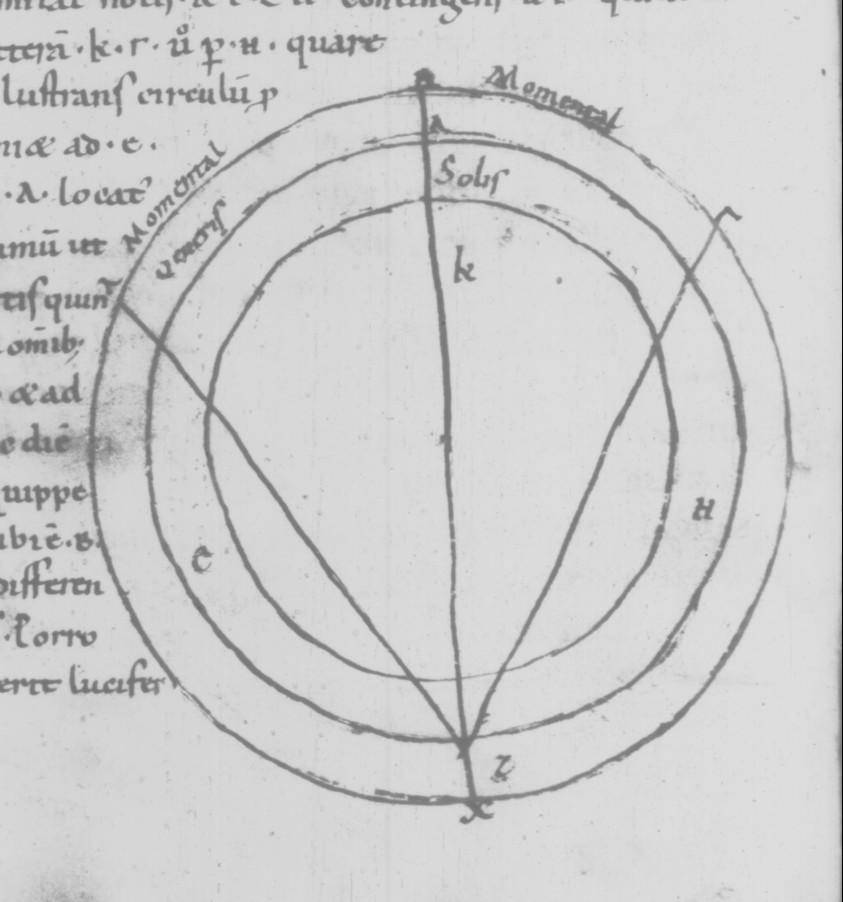 tterã·k·r·
p·H·quare
lustrans circulũ p
niæ ad·e·
·A·locat᾿
amũ ut
tis quin
omib;
æ ad
e diẽ
quippe
ubiẽ·B·
differen
·Porro
erit lucifer
Momental
A
Solis
Momental
Veneris
k
r
H
e
z
x